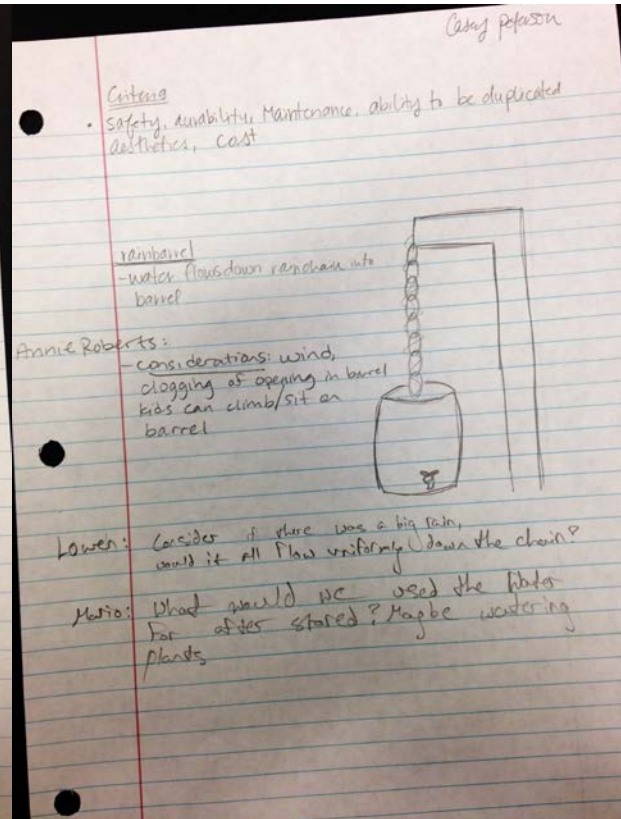 Casey Peterson
Criteria
• safety, durability, Maintenance, ability to be duplicated
aesthetics, cost
rainbarrel
-water flows down rainchain into
barrel
Annie Roberts:
-considerations: wind,
clogging of opening in barrel
kids can climb/sit on
barrel
Lowen: Consider if there was a big rain,
would it all flow uniformly down the chain?
Mario: What would we used the water
for after stored? Maybe watering
plants